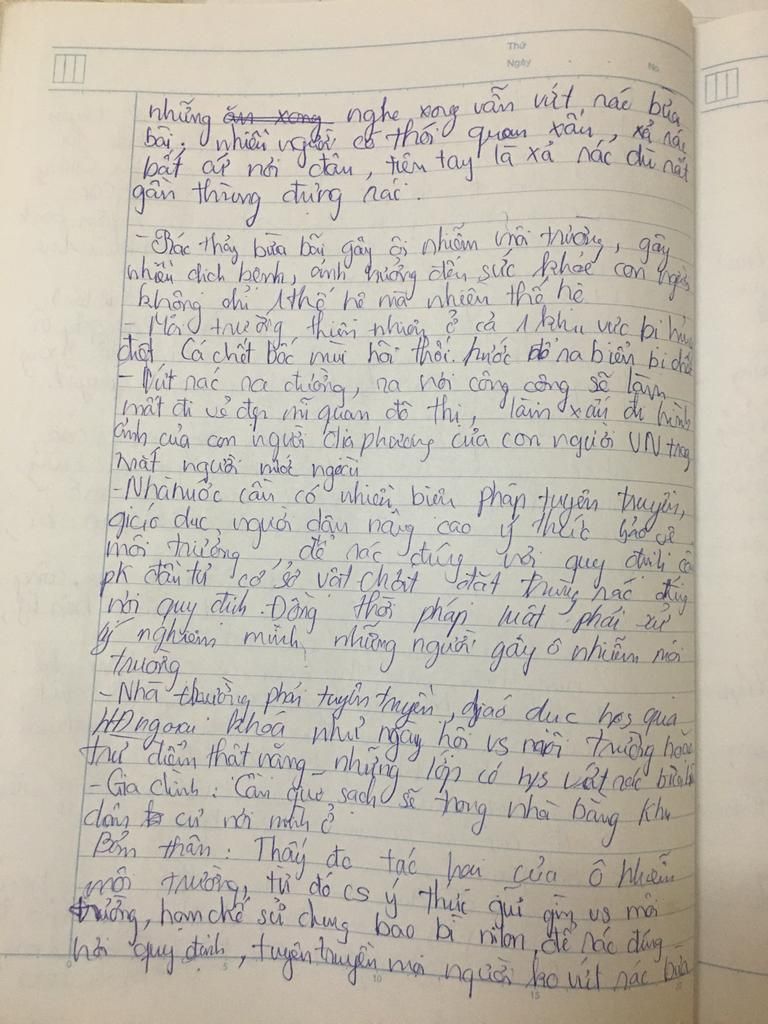 Thứ
Ngày
No
những ăn xong nghe xong vẫn vứt rác bừa
bãi. nhiều người có thói quen xấu, xả rác
bất cứ nơi đâu, tiện tay là xả rác dù rất
gần thùng đựng rác.
- Rác thảy bừa bãi gây ôi nhiễm môi trường, gây
nhiều dịch bệnh, ảnh hưởng đến sức khỏe con người
không chỉ 1 thế hệ mà nhiều thế hệ
- Môi trường thiên nhiên ở cả 1 khu vực bị hủy
diệt Cá chết bốc mùi hôi thối. nước đổ ra biển bị
- Vứt rác ra đường, ra nơi công cộng sẽ làm
mất đi vẻ đẹp mĩ quan đô thị, làm xấu đi hình
ảnh của con người địa phương của con người VN trong
mắt người nước ngoài
- Nhà nước cần có nhiều biện pháp tuyên truyền,
giáo dục người dân nâng cao ý thức bảo vệ
môi trường, để rác đúng nơi quy định cần
pk đầu tư cơ sở vật chất đặt thùng rác đúng
nơi quy định. Đồng thời pháp luật phải xử
lý nghiêm minh những người gây ô nhiễm môi
trường
- Nhà trường phải tuyên truyền, giáo dục hs qua
HĐ ngoại khoá như ngày hội vs môi trường hoặc
trừ điểm thật nặng những lớp có h/s vứt rác bừa bãi
- Gia đình: Cần sạch sẽ trong nhà bằng khu
dân cư nơi mình ở
Bản thân: Thấy đc tác hại của ô nhiễm
môi trường, từ đó cs ý thức giữ gìn vs môi
trường, hạn chế sử dụng bao bì nilon, để rác đúng
nơi quy định, tuyên truyền mọi người ko vứt rác bừa
10
15